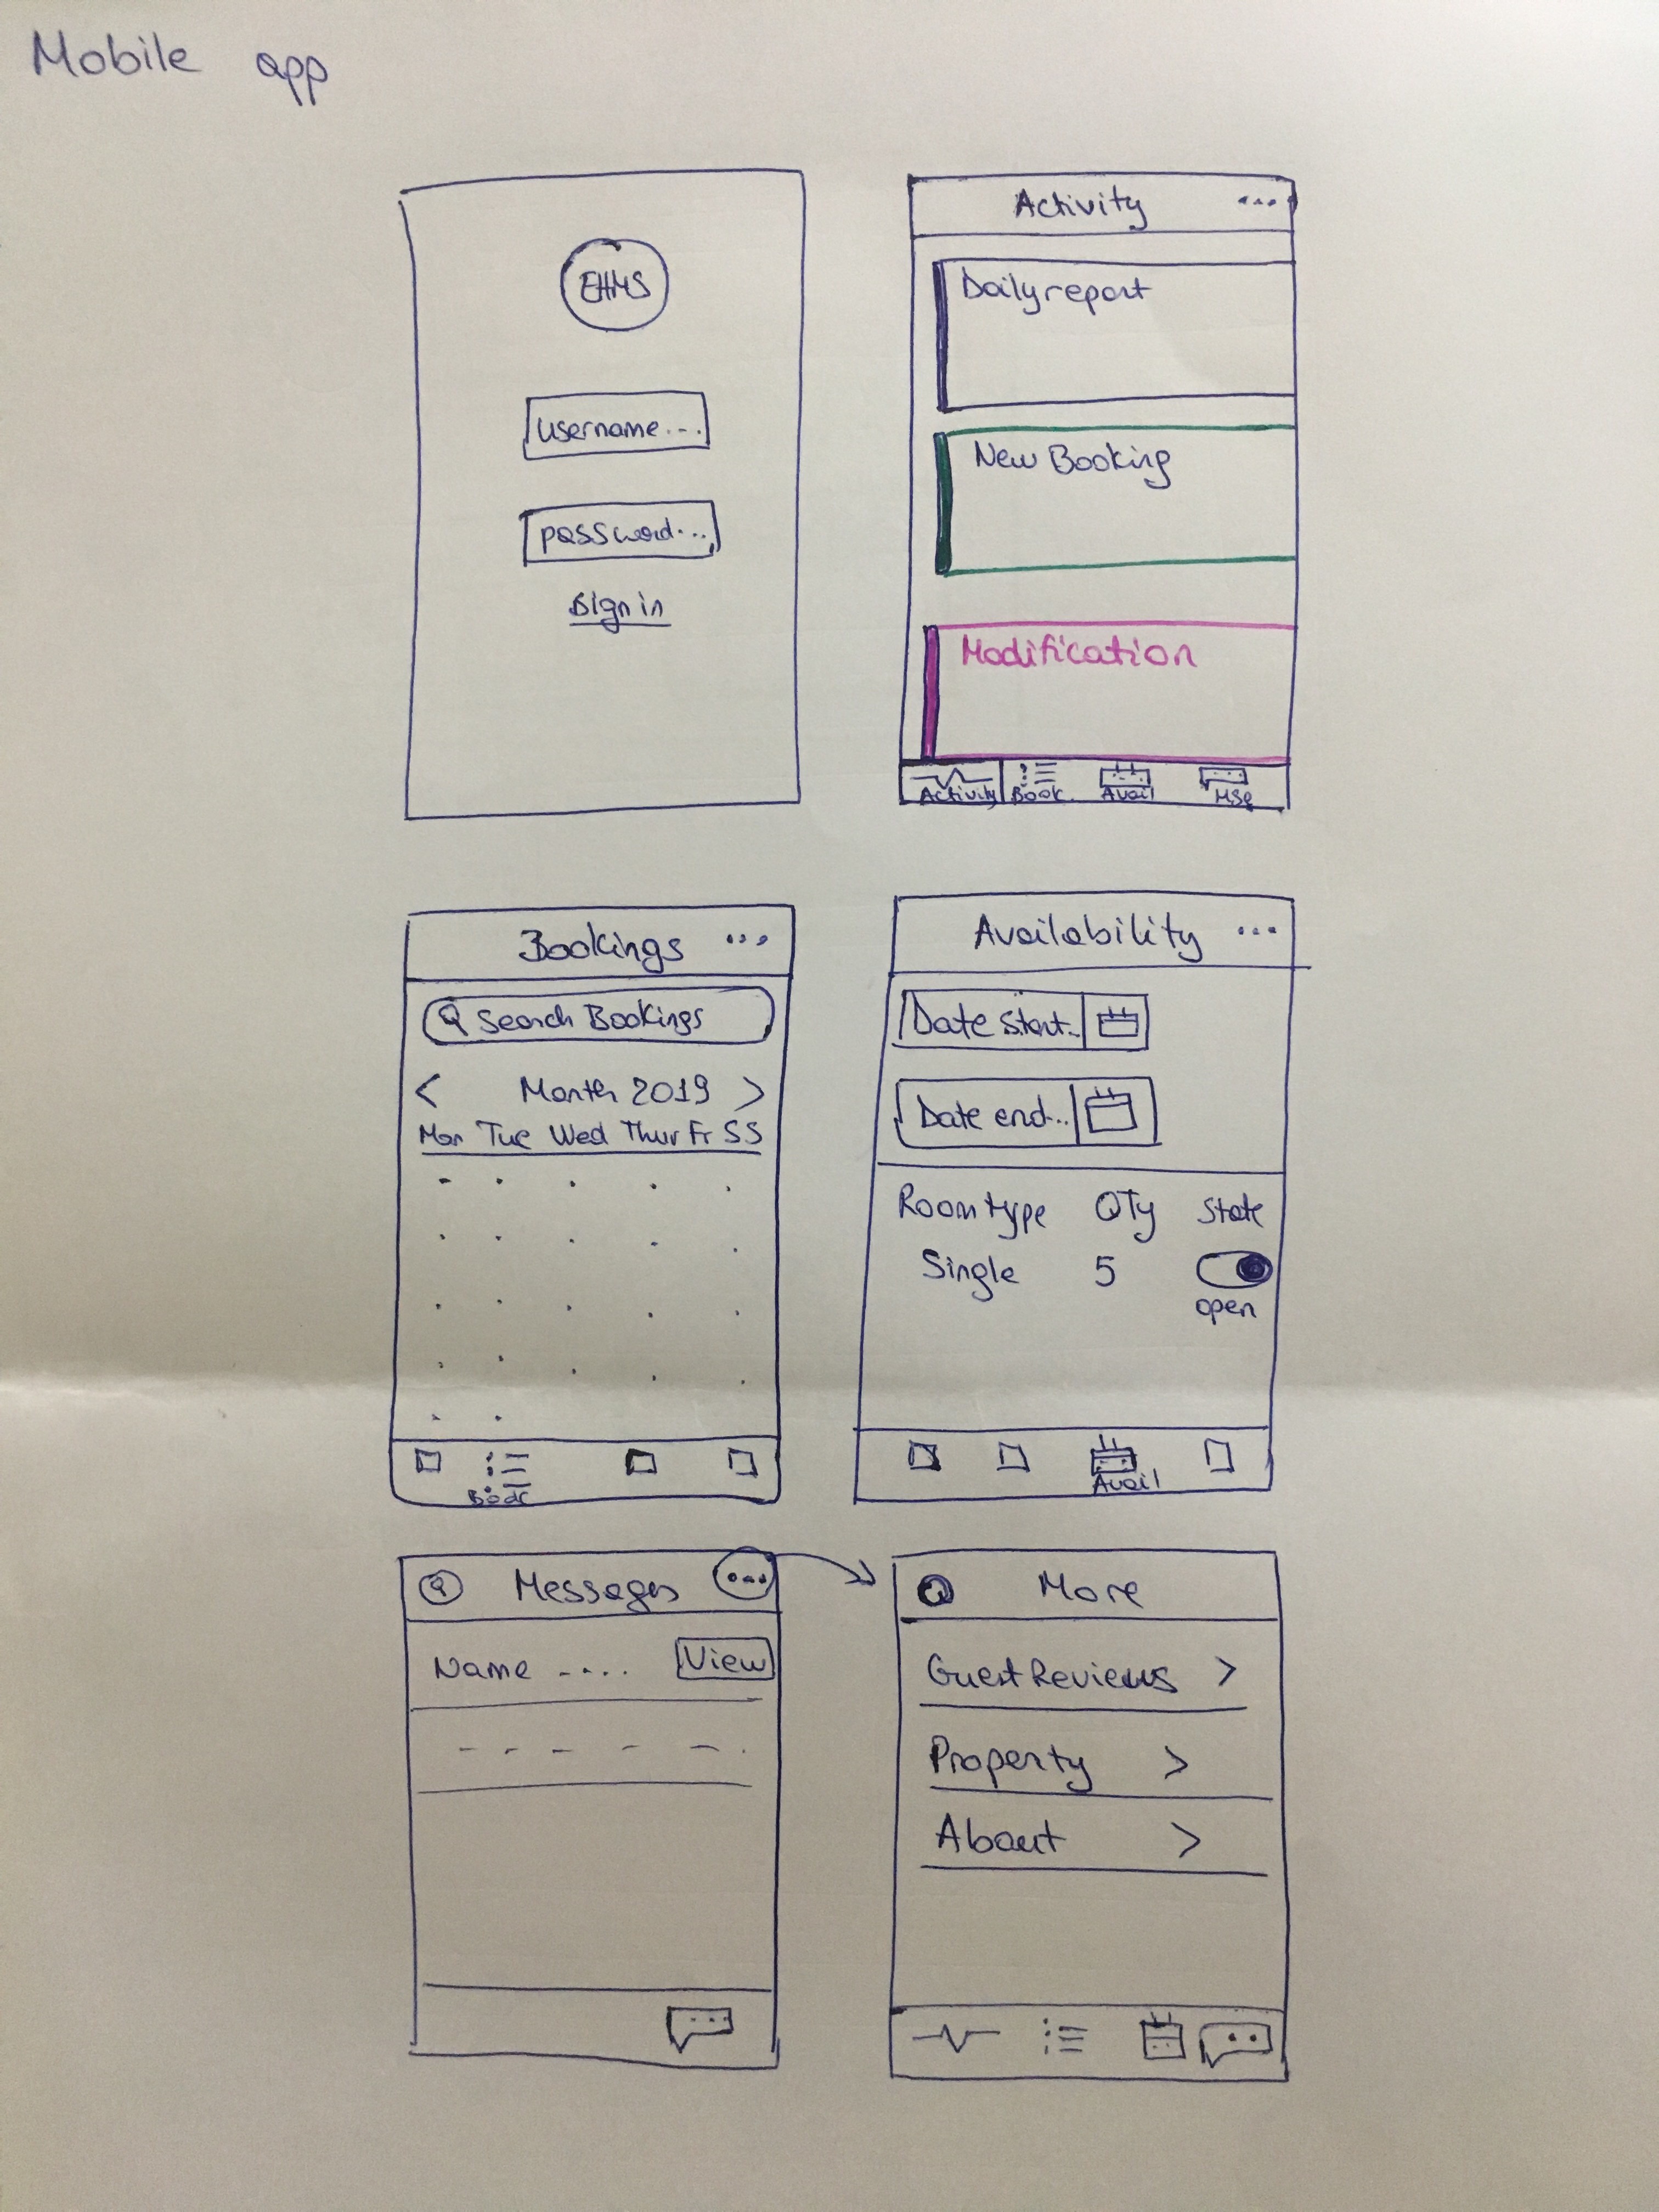 Mobile app
EHMS
username...
password...
Sign in
Activity ...
Daily report
New Booking
Modification
Activity Book. Avail Msg
Bookings ...
Search Bookings
< Month 2019 >
Mon Tue Wed Thur Fr S S
Book
Availability ...
Date start..
Date end...
Room type QTy State
Single 5
open
Avail
Messages ...
Name .... View
More
Guest Reviews >
Property >
About >